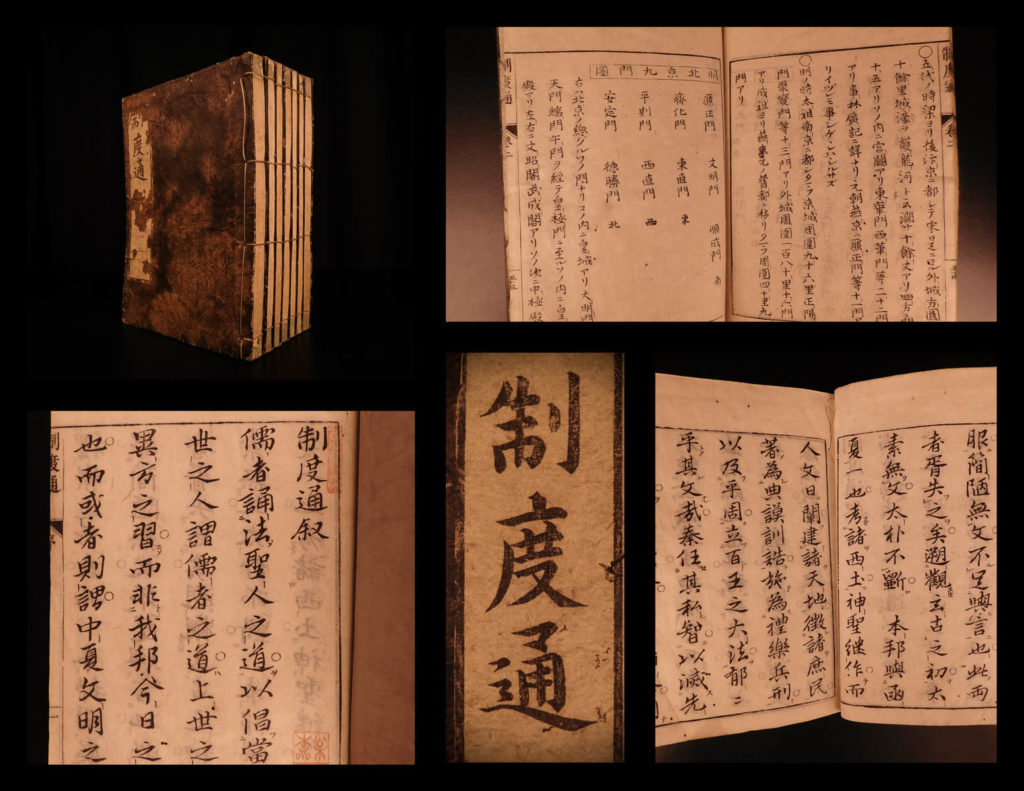 制度通
制度通
卷二
○五代ノ時梁ヨリ後汴京都シテ宋
外城方圓
十餘里城濠ヲ護龍河ト云濶サ十餘丈アリ四方
十五アリソノ内ニ宮闕アリ東華門西華門等二十二門
アリ事林廣記ニ詳ナリ元朝燕京ニ麗正門等十一門
リイヅレモ事シゲケレバシルサズ
○明ノ時太祖南京ニ都シタマフ京城周圍九十六里正陽
門聚寶門等十三門アリ外城周圍一百八十里十六門
アリ成祖ヨリ燕
舊都ニ移リタマフ周圍四十里九
門アリ
明北京九門圖
麗正門 文明門 順成門 南
齊化門 東直門 東
平則門 西直門 西
安定門 德勝門 北
右ハ北京ノ總グルワノ門ナリコノ内ニ皇城アリ大明門
天門端門午門ヲ經テ皇極門ニ至ルソノ内ニ皇
殿アリ左右ニ文昭閣武成閣アリソノ次ニ中極殿
制度通
卷二
制度通叙
儒者誦法聖人之道以倡當
世之人謂儒者之道上世之
異方之習而非我邦今日之
也而或者則謂中夏文明之
制度通
制度通
眼簡陋無文不足與言也此両
者胥失之矣遡觀玄古之初太
素無文太朴不斵本邦與函
夏一也考諸西土神聖继作而
人文日闡建諸天地徵諸庶民
著為典謨訓誥施為禮樂兵刑
以及乎周立百王之大法郁二
乎其文哉秦任其私智以滅先